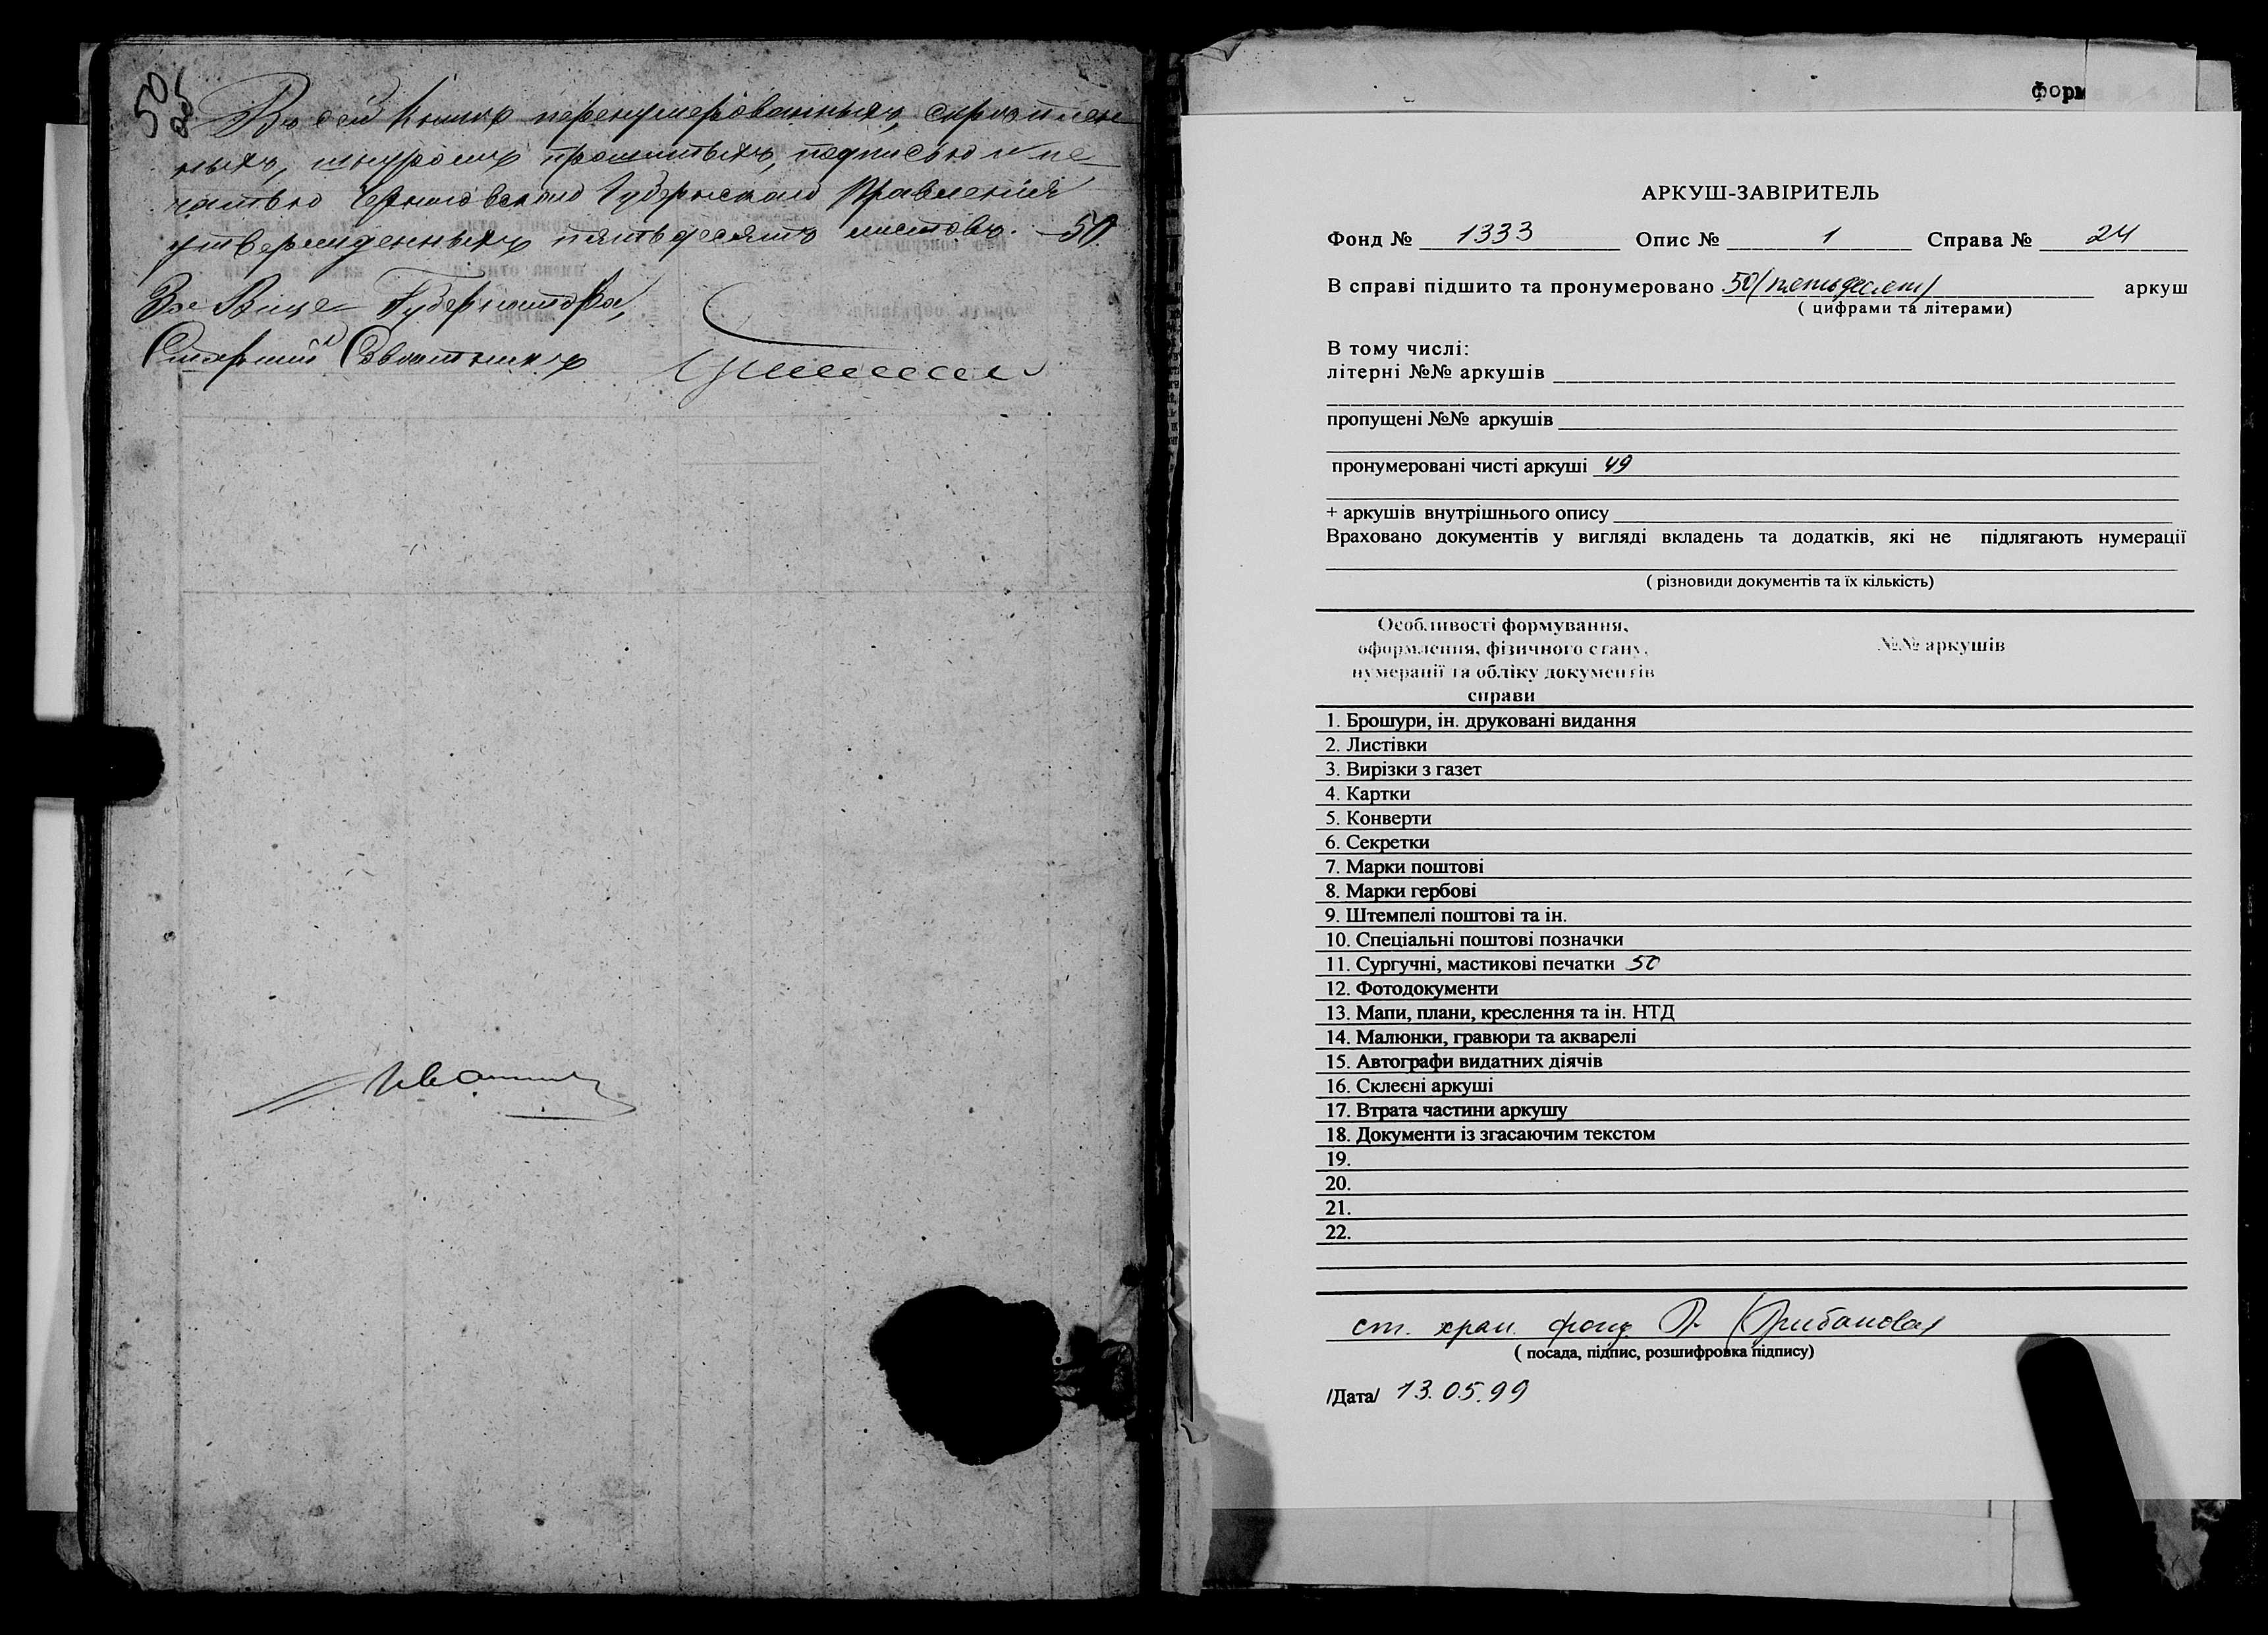 50
об
Въ сей книгѣ перенумерованныхъ, скрѣплен
ныхъ, шнуромъ прошитыхъ, подписью и пе
чатью Черниговскаго Губернскаго Правленія
утвержденныхъ пятьдесятъ листовъ. — 50
За Вице-Губернатора,
Старшій Совѣтникъ
форм
АРКУШ-ЗАВІРИТЕЛЬ
Фонд № 1333 Опис № 1 Справа № 24
В справі підшито та пронумеровано 50 (пятьдесят) аркуш
( цифрами та літерами)
В тому числі:
літерні №№ аркушів
пропущені №№ аркушів
пронумеровані чисті аркуші 49
+ аркушів внутрішнього опису
Враховано документів у вигляді вкладень та додатків, які не підлягають нумерації
( різновиди документів та їх кількість)
Особливості формування,
оформлення, фізичного стану, №№ аркушів
нумерації та обліку документів
справи
1. Брошури, ін. друковані видання
2. Листівки
3. Вирізки з газет
4. Картки
5. Конверти
6. Секретки
7. Марки поштові
8. Марки гербові
9. Штемпелі поштові та ін.
10. Спеціальні поштові позначки
11. Сургучні, мастикові печатки 50
12. Фотодокументи
13. Мапи, плани, креслення та ін. НТД
14. Малюнки, гравюри та акварелі
15. Автографи видатних діячів
16. Склеєні аркуші
17. Втрата частини аркушу
18. Документи із згасаючим текстом
19.
20.
21.
22.
ст. хран. фонд. (Грибанова)
( посада, підпис, розшифровка підпису)
/Дата/ 13.05.99